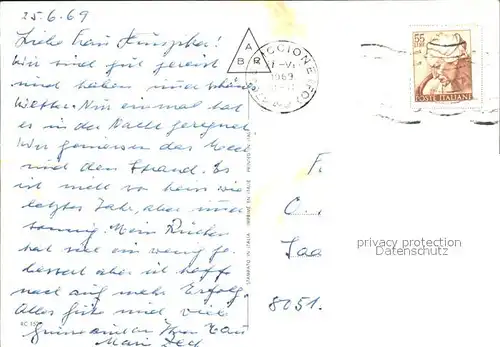 25.6.69
Liebe Frau
Wir sind gut gereist
und haben immer schönes
Wetter. Nur einmal hat
es in der Nacht geregnet
Wir geniessen das Meer
und den Strand. Es
ist nicht so heiss wie
letztes Jahr, aber immer
sonnig. Mein Rücken
hat sich ein wenig ge-
bessert aber ich hoffe
noch auf mehr Erfolg.
Alles Gute und viele
Grüsse an Ihren
A
B R
RICCIONE (FO)
1969
55
POSTE ITALIANE
STAMPATO IN ITALIA - IMPRIMÉ EN ITALIE - PRINTED IN ITALY
F
C
Saa
8051.
privacy protection
Datenschutz